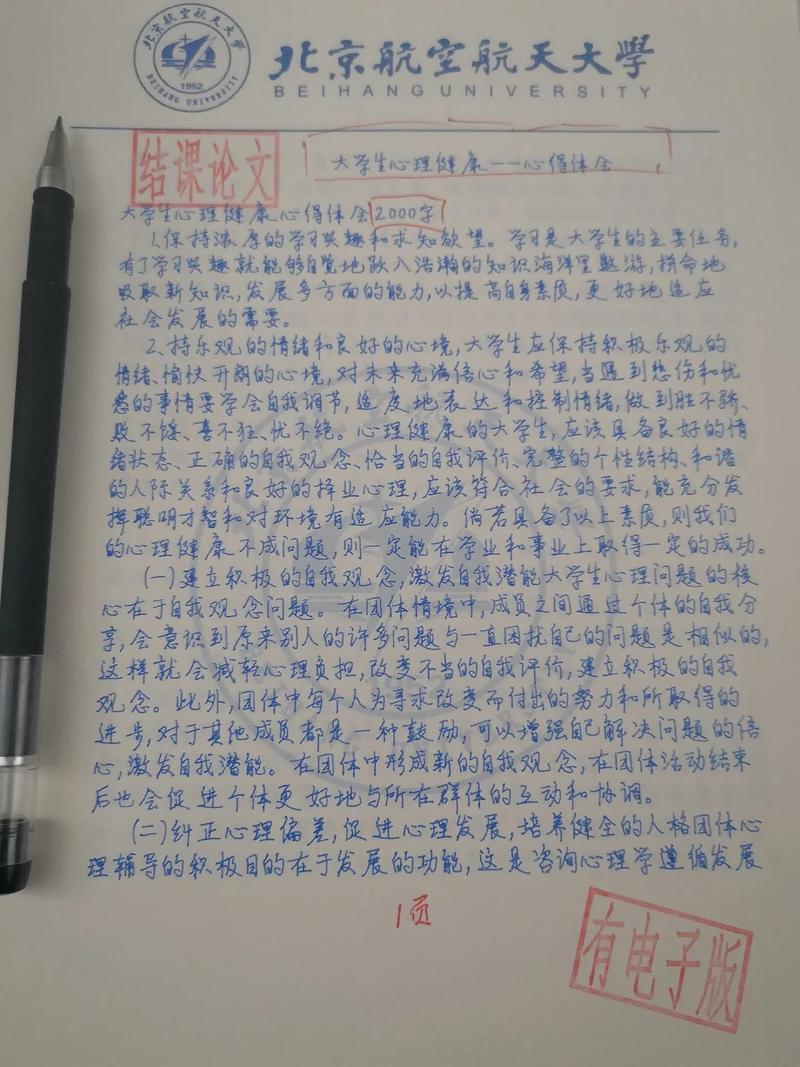 北京航空航天大学
BEIHANG UNIVERSITY
北京航空航天大学
1952
BEIHANG UNIVERSITY
结课论文
大学生心理健康——心得体会
大学生心理健康心得体会2000字
1.保持浓厚的学习兴趣和求知欲望。学习是大学生的主要任务,
有了学习兴趣就能够自觉地跃入浩瀚的知识海洋里遨游,拼命地
吸取新知识,发展多方面的能力,以提高自身素质,更好地适应
社会发展的需要。
2、持乐观的情绪和良好的心境,大学生应保持积极乐观的
情绪、愉快开朗的心境,对未来充满信心和希望,当遇到悲伤和忧
愁的事情要学会自我调节,适度地表达和控制情绪,做到胜不骄、
败不馁、喜不狂、忧不绝。心理健康的大学生,应该具备良好的情
绪状态、正确的自我观念、恰当的自我评价、完整的个性结构、和谐
的人际关系和良好的择业心理,应该符合社会的要求,能充分发
挥聪明才智和对环境有适应能力。倘若具备了以上素质,则我们
的心理健康不成问题,则一定能在学业和事业上取得一定的成功。
(一)建立积极的自我观念,激发自我潜能大学生心理问题的核
心在于自我观念问题。在团体情境中,成员之间通过个体的自我分
享,会意识到原来别人的许多问题与一直困扰自己的问题是相似的,
这样就会减轻心理负担,改变不当的自我评价,建立积极的自我
观念。此外,团体中每个人为寻求改变而付出的努力和所取得的
进步,对于其他成员都是一种鼓励,可以增强自己解决问题的信
心,激发自我潜能。在团体中形成新的自我观念,在团体活动结束
后也会促进个体更好地与所在群体的互动和协调。
(二)纠正心理偏差,促进心理发展,培养健全的人格团体心
理辅导的积极目的在于发展的功能,这是咨询心理学遵循发展
1页
有电子版